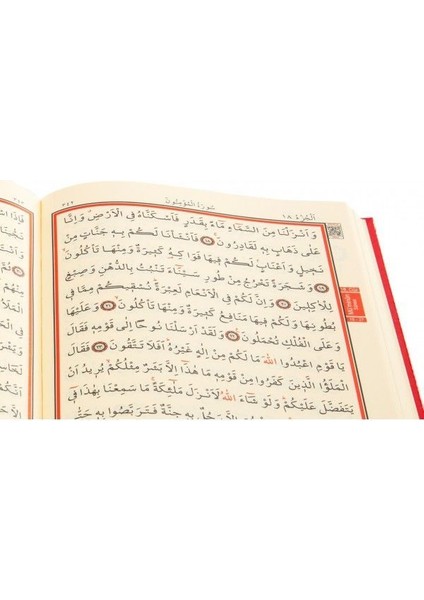 اَلْجُزْءُ ١٨ سُورَةُ الْمُؤْمِنُونَ ٣٤٢
وَاَنْزَلْنَا مِنَ السَّمَٓاءِ مَٓاءً بِقَدَرٍ فَاَسْكَنَّاهُ فِي الْاَرْضِ وَاِنَّا
عَلٰى ذَهَابٍ بِه۪ لَقَادِرُونَ ١٨ فَاَنْشَأْنَا لَكُمْ بِه۪ جَنَّاتٍ مِنْ
نَخ۪يلٍ وَاَعْنَابٍ لَكُمْ ف۪يهَا فَوَاكِهُ كَث۪يرَةٌ وَمِنْهَا تَأْكُلُونَ
١٩ وَشَجَرَةً تَخْرُجُ مِنْ طُورِ سَيْنَٓاءَ تَنْبُتُ بِالدُّهْنِ وَصِبْغٍ
لِلْاٰكِل۪ينَ ٢٠ وَاِنَّ لَكُمْ فِي الْاَنْعَامِ لَعِبْرَةً نُسْق۪يكُمْ مِمَّا ف۪ي
بُطُونِهَا وَلَكُمْ ف۪يهَا مَنَافِعُ كَث۪يرَةٌ وَمِنْهَا تَأْكُلُونَ ٢١ وَعَلَيْهَا
وَعَلَى الْفُلْكِ تُحْمَلُونَ ٢٢ وَلَقَدْ اَرْسَلْنَا نُوحًا اِلٰى قَوْمِه۪ فَقَالَ
يَا قَوْمِ اعْبُدُوا اللّٰهَ مَا لَكُمْ مِنْ اِلٰهٍ غَيْرُهُ اَفَلَا تَتَّقُونَ ٢٣ فَقَالَ
الْمَلَؤُا الَّذ۪ينَ كَفَرُوا مِنْ قَوْمِه۪ مَا هٰذَٓا اِلَّا بَشَرٌ مِثْلُكُمْ يُر۪يدُ اَنْ
يَتَفَضَّلَ عَلَيْكُمْ وَلَوْ شَٓاءَ اللّٰهُ لَاَنْزَلَ مَلٰٓئِكَةً مَا سَمِعْنَا بِهٰذَا ف۪ٓي
رَجُلٌ بِه۪ جِنَّةٌ فَتَرَبَّصُوا بِه۪ حَتّٰى